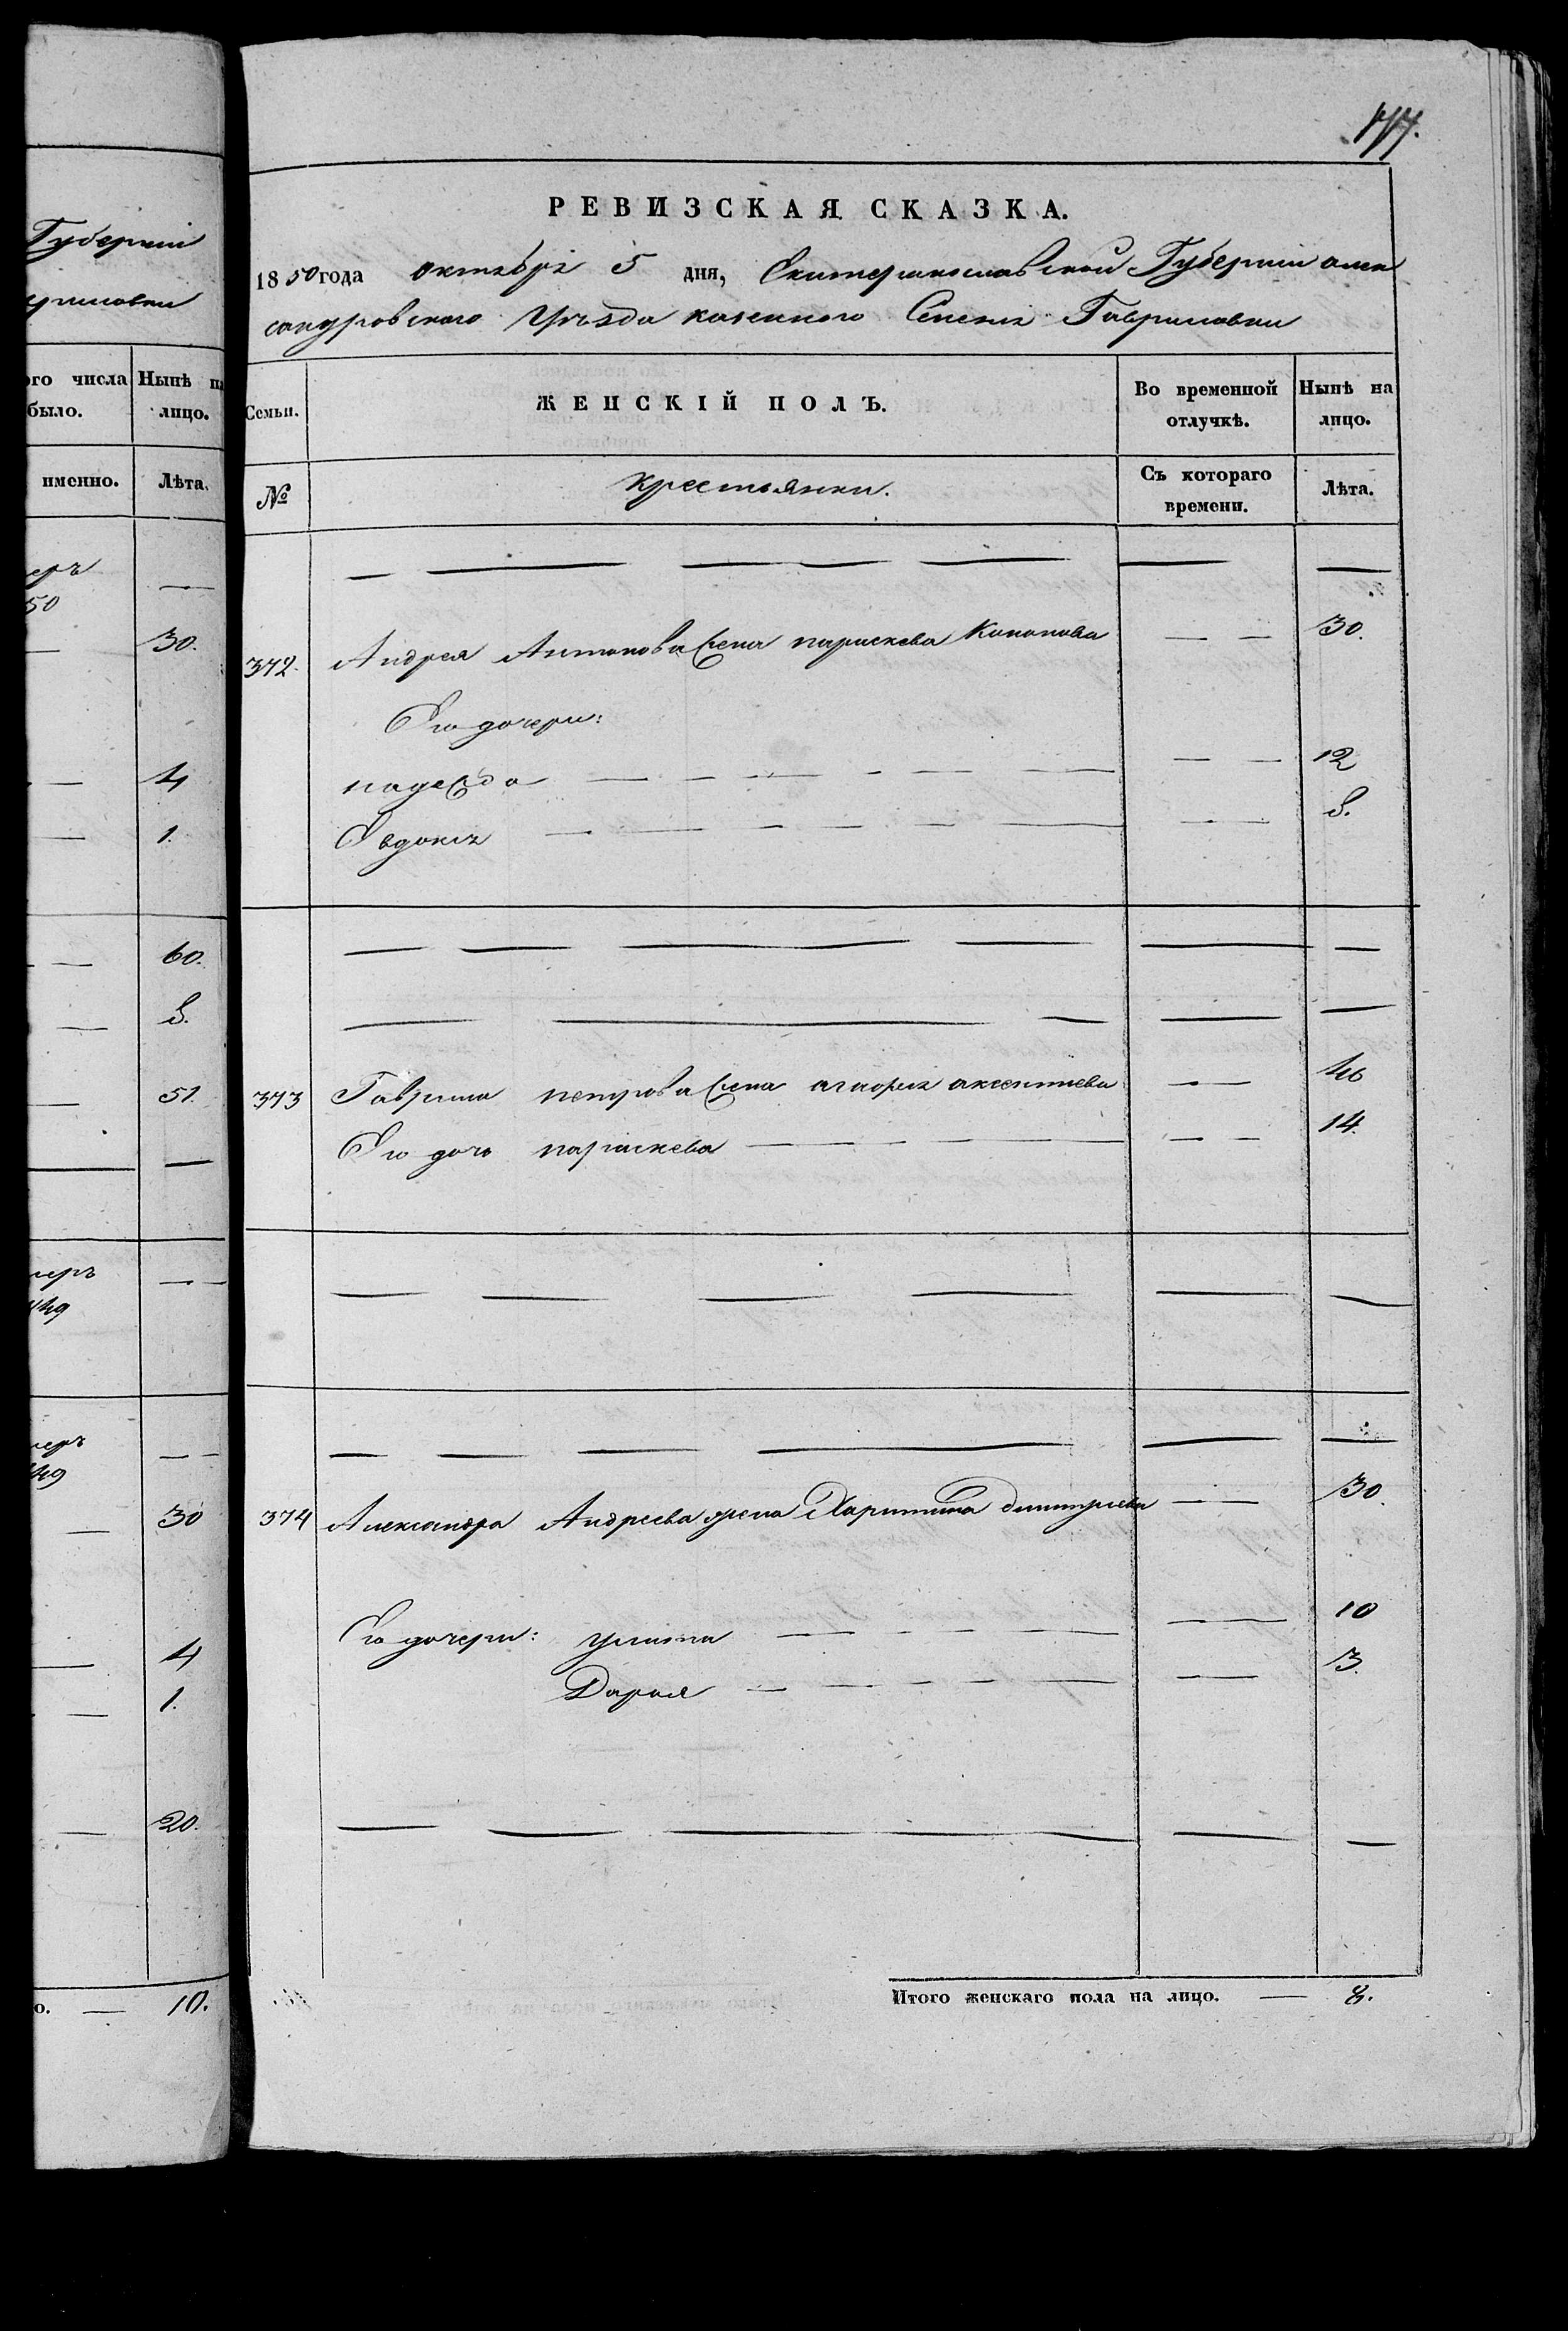 Губерніи
ого числа Нынѣ
было. лицо.
именно. Лѣта.
50
30.
4
1.
60.
8.
51
49
49
30
4
1.
20.
о. — 10.
РЕВИЗСКАЯ СКАЗКА.
1850 года октября 5 дня, Екатеринославской Губерніи алек
сандровского Уѣзда казенного Селенія Гавриловки
Семьи. ЖЕНСКІЙ ПОЛЪ. Во временной отлучкѣ. Нынѣ на лицо.
№ крестьянки. Съ котораго времени. Лѣта.
372. Андрея Антонова жена параскева Кононова — — 30.
Его дочери:
надежда — — 12
Евдокія — — 8.
373 Гаврила петрова жена агафія аксентиева — — 46
Его дочь параскева — — 14.
374 Александра Андреева жена Харитина димитриева — — 30.
Его дочери: улияна — — 10
Дарья — — 3.
Итого женскаго пола на лицо. — 8.